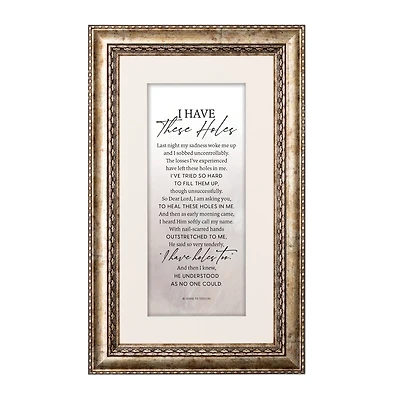 I HAVE
These Holes
Last night my sadness woke me up
and I sobbed uncontrollably.
The losses I've experienced
have left these holes in me.
I'VE TRIED SO HARD
TO FILL THEM UP,
though unsuccessfully.
So Dear Lord, I am asking you,
TO HEAL THESE HOLES IN ME.
And then as early morning came,
I heard Him softly call my name.
With nail-scarred hands
OUTSTRETCHED TO ME,
He said so very tenderly,
"I have holes too."
And then I knew,
HE UNDERSTOOD
AS NO ONE COULD.